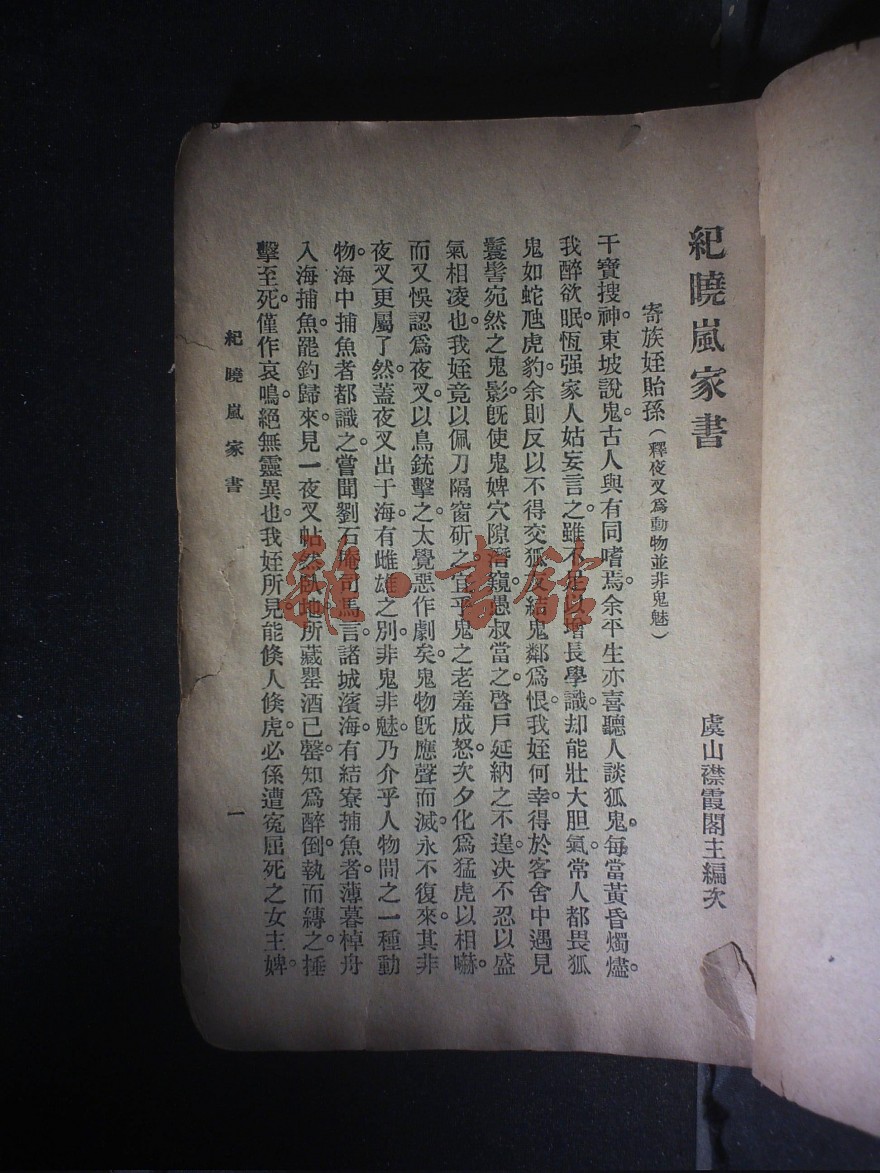 紀曉嵐家書
虞山襟霞閣主編次
寄族姪貽孫（釋夜叉爲動物並非鬼魅）
干寶搜神。東坡說鬼。古人與有同嗜焉。余平生亦喜聽人談狐鬼。每當黃昏燭燼。
我醉欲眠。恆强家人姑妄言之。雖不足以增長學識。却能壯大胆氣。常人都畏狐
鬼如蛇虺虎豹。余則反以不得交狐友結鬼鄰爲恨。我姪何幸。得於客舍中遇見
鬟髻宛然之鬼影。旣使鬼婢穴隙潛窺。愚叔當之。啓戶延納之不遑。决不忍以盛
氣相凌也。我姪竟以佩刀隔窗斫之。宜乎鬼之老羞成怒。次夕化爲猛虎以相嚇。
而又悞認爲夜叉。以鳥銃擊之。太覺惡作劇矣。鬼物旣應聲而滅。永不復來。其非
夜叉更屬了然。蓋夜叉出于海。有雌雄之別。非鬼非魅。乃介乎人物間之一種動
物。海中捕魚者都識之。嘗聞劉石庵司馬言。諸城濱海。有結寮捕魚者。薄暮棹舟
入海捕魚。罷釣歸來。見一夜叉帖然臥地。所藏罌酒已罄。知爲醉倒。執而縛之。捶
擊至死。僅作哀鳴。絕無靈異也。我姪所見。能倏人倏虎。必係遭寃屈死之女主婢。
紀曉嵐家書
一
雜·書館